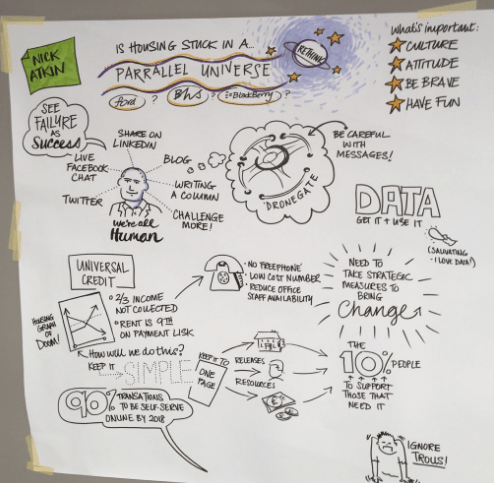 NICK
ATKIN
IS HOUSING STUCK IN A...
PARRALLEL UNIVERSE
Ford ? Bhs ? BlackBerry ?
RETHINK
what's important:
CULTURE
ATTITUDE
BE BRAVE
HAVE FUN
SEE
FAILURE
AS
SUCCESS
SHARE ON
LINKEDIN
LIVE
FACEBOOK
CHAT
BLOG
TWITTER
WRITING
A COLUMN
CHALLENGE
MORE!
we're all
Human
DRONEGATE
BE CAREFUL
WITH
MESSAGES!
DATA
GET IT + USE IT
(SALIVATING
- I LOVE DATA!)
UNIVERSAL
CREDIT
HOUSING
GRAPH OF
DOOM!
2/3 INCOME
NOT COLLECTED
RENT IS 9TH
ON PAYMENT LISK
NO 'FREEPHONE'
LOW COST NUMBER
REDUCE OFFICE
STAFF AVAILABILITY
NEED TO
TAKE STRATEGIC
MEASURES TO
BRING
Change
How will we do this?
KEEP IT
SIMPLE
KEEP IT TO
ONE
PAGE
RELEASES
RESOURCES
THE
10% PEOPLE
TO SUPPORT
THOSE THAT
NEED IT
90% TRANSATIONS
TO BE SELF-SERVE
ONLINE BY 2018
IGNORE
TROLLS!